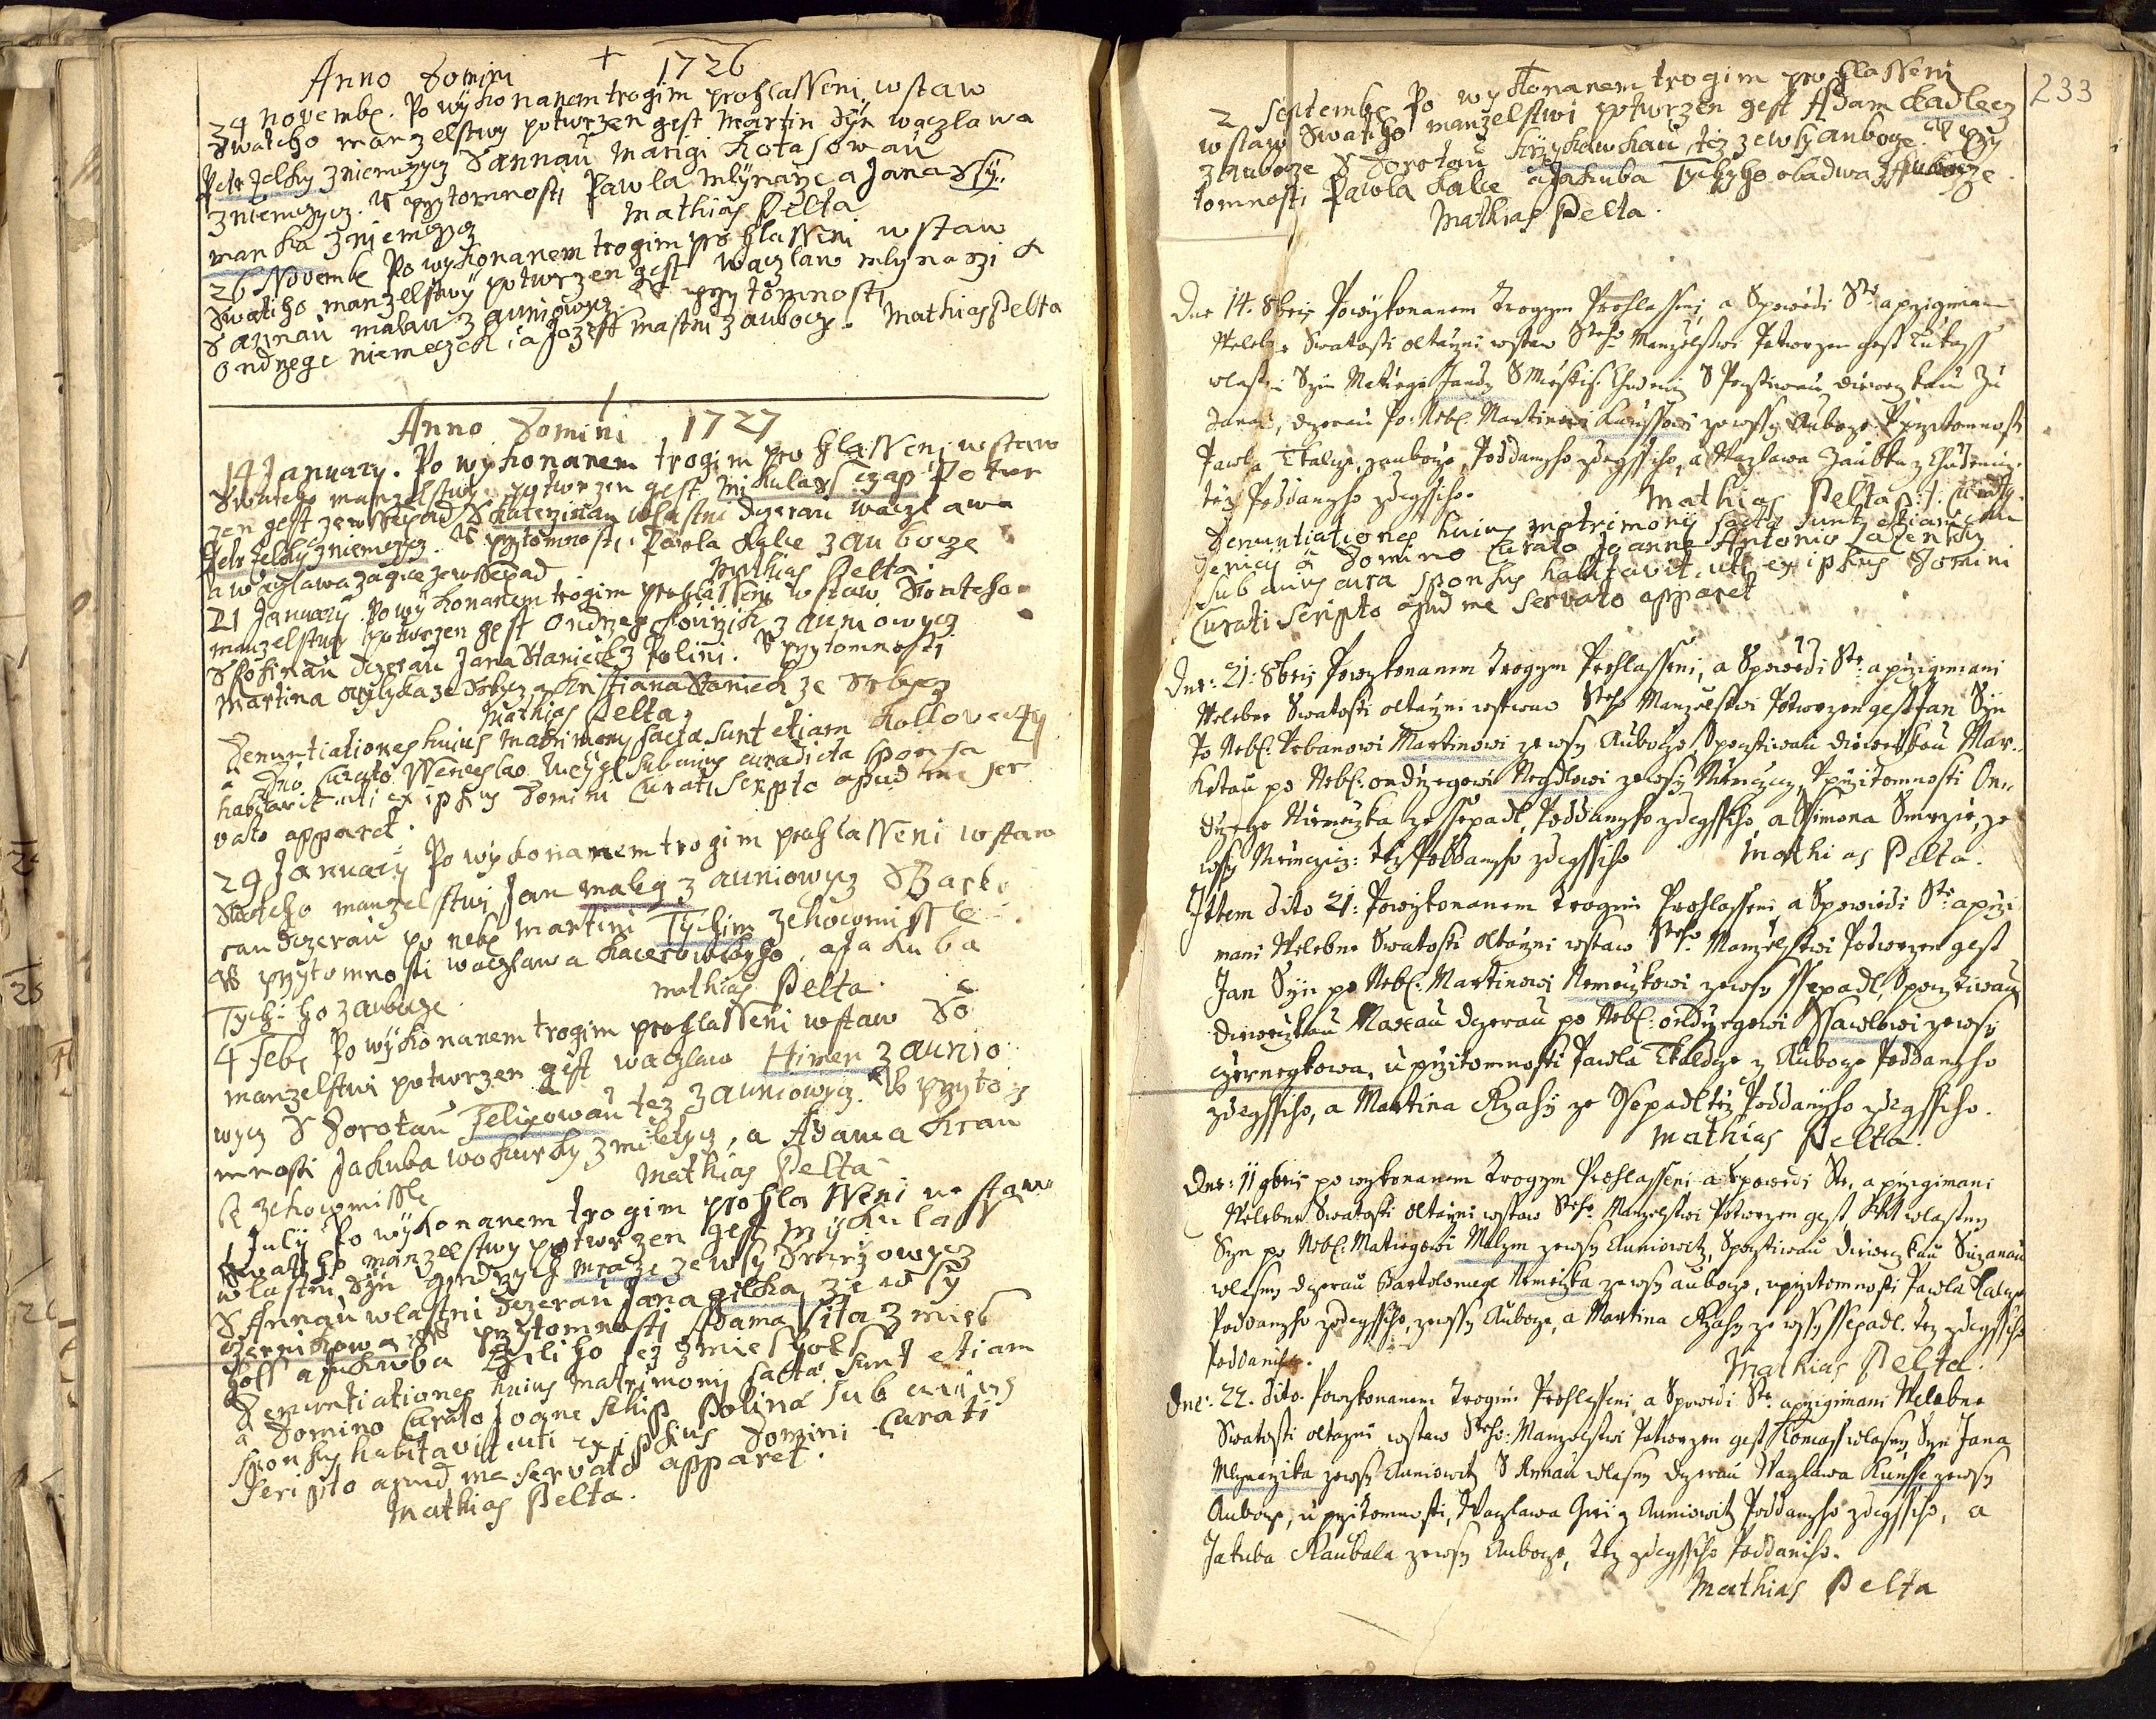 Anno Domini 1726
24 Novembr. Po wykonanem trogim prohlasseni wstaw
Swateho manzelstwy potwrzen gest Martin Syn waczlawa
Petr Jelky z niemczycz S annau Marigi Kotasowau
z niemczycz. W przytomnosti Pawla mlynarze a Jana Ssy.
manka z niemczycz Mathias Pelta
26 Novembr Po wykonanem trogim prohlasseni wstaw
Swatiho manzelstwy potwrzen gest waczlaw mlynarzi k
S annau malau z auniowycz. W przytomnosti
Ondrzege niemeczek a Jozeff mastni z aubocze. Mathias Pelta
Anno Domini 1727
14 January. Po wykonanem trogim prohlasseni wstaw
Swateho manzelstwy potwrzen gest Mikulass czap Potwr
zen gest ze wssepadl S Katerzinau wlastni dczerau waczlawa
Petr Jelky z niemczycz. W przytomnosti Pawla Kalce z aubocze
a waczlawa zagice ze wssepadl Mathias Pelta
21 January Po wykonanem trogim prohlasseni wstaw Swateho
manzelstwy potwrzen gest Ondrzeg z auniowycz
S Rosinau dczerau Jana Staniek z Polini. W przytomnosti
Martina ze Srbycz a Kristiana Staniek ze Srbycz
Mathias Pelta
Denuntiationes huius Matrimony facta sunt etiam Kolloveczy
a Dno Curato Wenceslao sub cuius cura dicta sponsa
habitavit uti ex ipsius Domini Curati Scripto apud me ser
vato apparet.
29 January Po wykonanem trogim prohlasseni wstaw
Swateho manzelstwi Jan maleg z auniowycz S Barbo
rau dczerau po nebo martini Tychim ze hocomissle
W przytomnosti waczlawa Kacerowskyho, a Jakuba
Tychiho z aubocze mathias Pelta.
4 Feb Po wykonanem trogim prohlasseni wstaw So
manzelstwi potwrzen gest waczlaw Himer z aunio
wycz S Dorotau Felixowau tez z auniowycz. W przyto
mnosti Jakuba wokurky z mileczycz, a Adama Krau
ze hocomissle Mathias Pelta
1 July Po wykonanem trogim prohlasseni wstaw
Swatiho manzelstwy potwrzen gest Mykulass
wlastni Syn gindrzych mraze ze wsy Smrzowycz
S Annau wlastni dczerau Jana gilka ze wsy
czernikowa W przytomnosti Adama Vita z mies
holss a Jakuba Bziliho tez z miesholss
Denuntiationes huius matrimony facta sunt etiam
a Domino Curato Joane Schip Polina sub cuius
sponsus habitavit uti ex ipsius Domini Curati
scripto apud me servato apparet.
Mathias Pelta.
233
2 Septembr Po wykonanem trogim prohlasseni
wstaw Swatiho manzelstwi potwrzen gest Adam Kadlecz
z aubocze S Dorotau Krzykawkau tez ze wsy aubocze. W przy
tomnosti Pawla Kalce a Jakuba Tychyho obadwa z aubocze.
Mathias Pelta.
Dne 14. 8bris Powykonanem Trogym Prohlasseni, a Spowedi Ste a przigimani
Welebne Swatosti oltarzni wstaw Steho Manzelstwi Potwrzen gest Lukass
wlastni Syn Matiege Jandy S Mestis. Chudenicz S Pocztiwau diweczkau Zu
zanau, dczerau Po: Nebl. Martinowi Kunssowi ze wsy Auboze V przitomnosti
Pawla Kalcze, z auboze, Poddanyho zdegssiho, a Waczlawa Zaubka z Chudenicz
tez Poddanyho zdegssiho. Mathias Pelta p.t. curatus
Denuntiationes huius matrimonij facta sunt etiam Chu
denicij a Domino Curato Joanne Antonio Lazensky
sub cuius cura sponsus habitavit, uti ex ipsius Domini
Curati scripto apud me servato apparet
Dne: 21: 8bris Powykonanem Trogym Prohlasseni, a Spowedi Ste a przigimani
Welebne Swatosti oltarzni wstaw Steho Manzelstwi Potwrzen gest Jan Syn
Po Nebl. Urbanowi Martinowi ze wsy Auboze, S pocztiwau diweczkau Mar-
ketau po Nebl: ondrzegowi Negdlowi ze wsy Niemczicz, V przitomnosti On-
drzege Niemeczka ze ssepadl, Poddanyho zdegssiho a Ssimona Smrzie, ze
wsy Niemczicz: tez Poddanyho zdegssiho Mathias Pelta.
Ittem dito 21: Powykonanem Trogim Prohlasseni a Spowiedi Ste a przigi
mani Welebne Swatosti oltarzni wstaw Steho Manzelstwi Potwrzen gest
Jan Syn po Nebl: Martinowi Nemeczkowi ze wsy Ssepadl, S pocztiwau
diweczkau Marau dczerau po Nebl: ondrzegowi Ssawlowi ze wsy
czernegkowa, u przitomnosti Pawla Kalcze z Auboze Poddanyho
zdegssiho, a Martina Rzahy ze Ssepadl tez Poddanyho zdegssiho.
Mathias Pelta.
Dne: 11 9bris po wykonanem Trogym Prohlasseni a Spowedi Ste, a przigimani
Welebne Swatosti oltarzni wstaw Steho Manzelstwi Potwrzen gest Wit wlastny
Syn po Nebl: Matiegowi Malym ze wsy Auniowitz, S poctiwau diweczkau Zuzanau
wlasny dczerau Bartolomege Nemeczka ze wsy auboze, u przitomnosti Pawla Kalcze
Poddanyho zdegssiho, ze wsy Auboze, a Martina Rzahy ze wsy ssepadl. tez zdegssiho
Poddaniho. Mathias Pelta.
Dne: 22. dito. Powykonanem Trogim Prohlasseni a Spowedi Ste a przigimani Welebne
Swatosti oltarzni wstaw Steho: Manzelstwi Potwrzen gest Tomass wlasny Syn Jana
Mlynarzika ze wsy Auniowitz S Annau wlasny dczerau Waczlawa Kunsse ze wsy
Auboze, u przitomnosti, Waczlawa Giri z Auniowitz Poddanyho zdegssiho, a
Jakuba Kaubala ze wsy Auboze, Tez zdegssiho Poddaniho.
Mathias Pelta